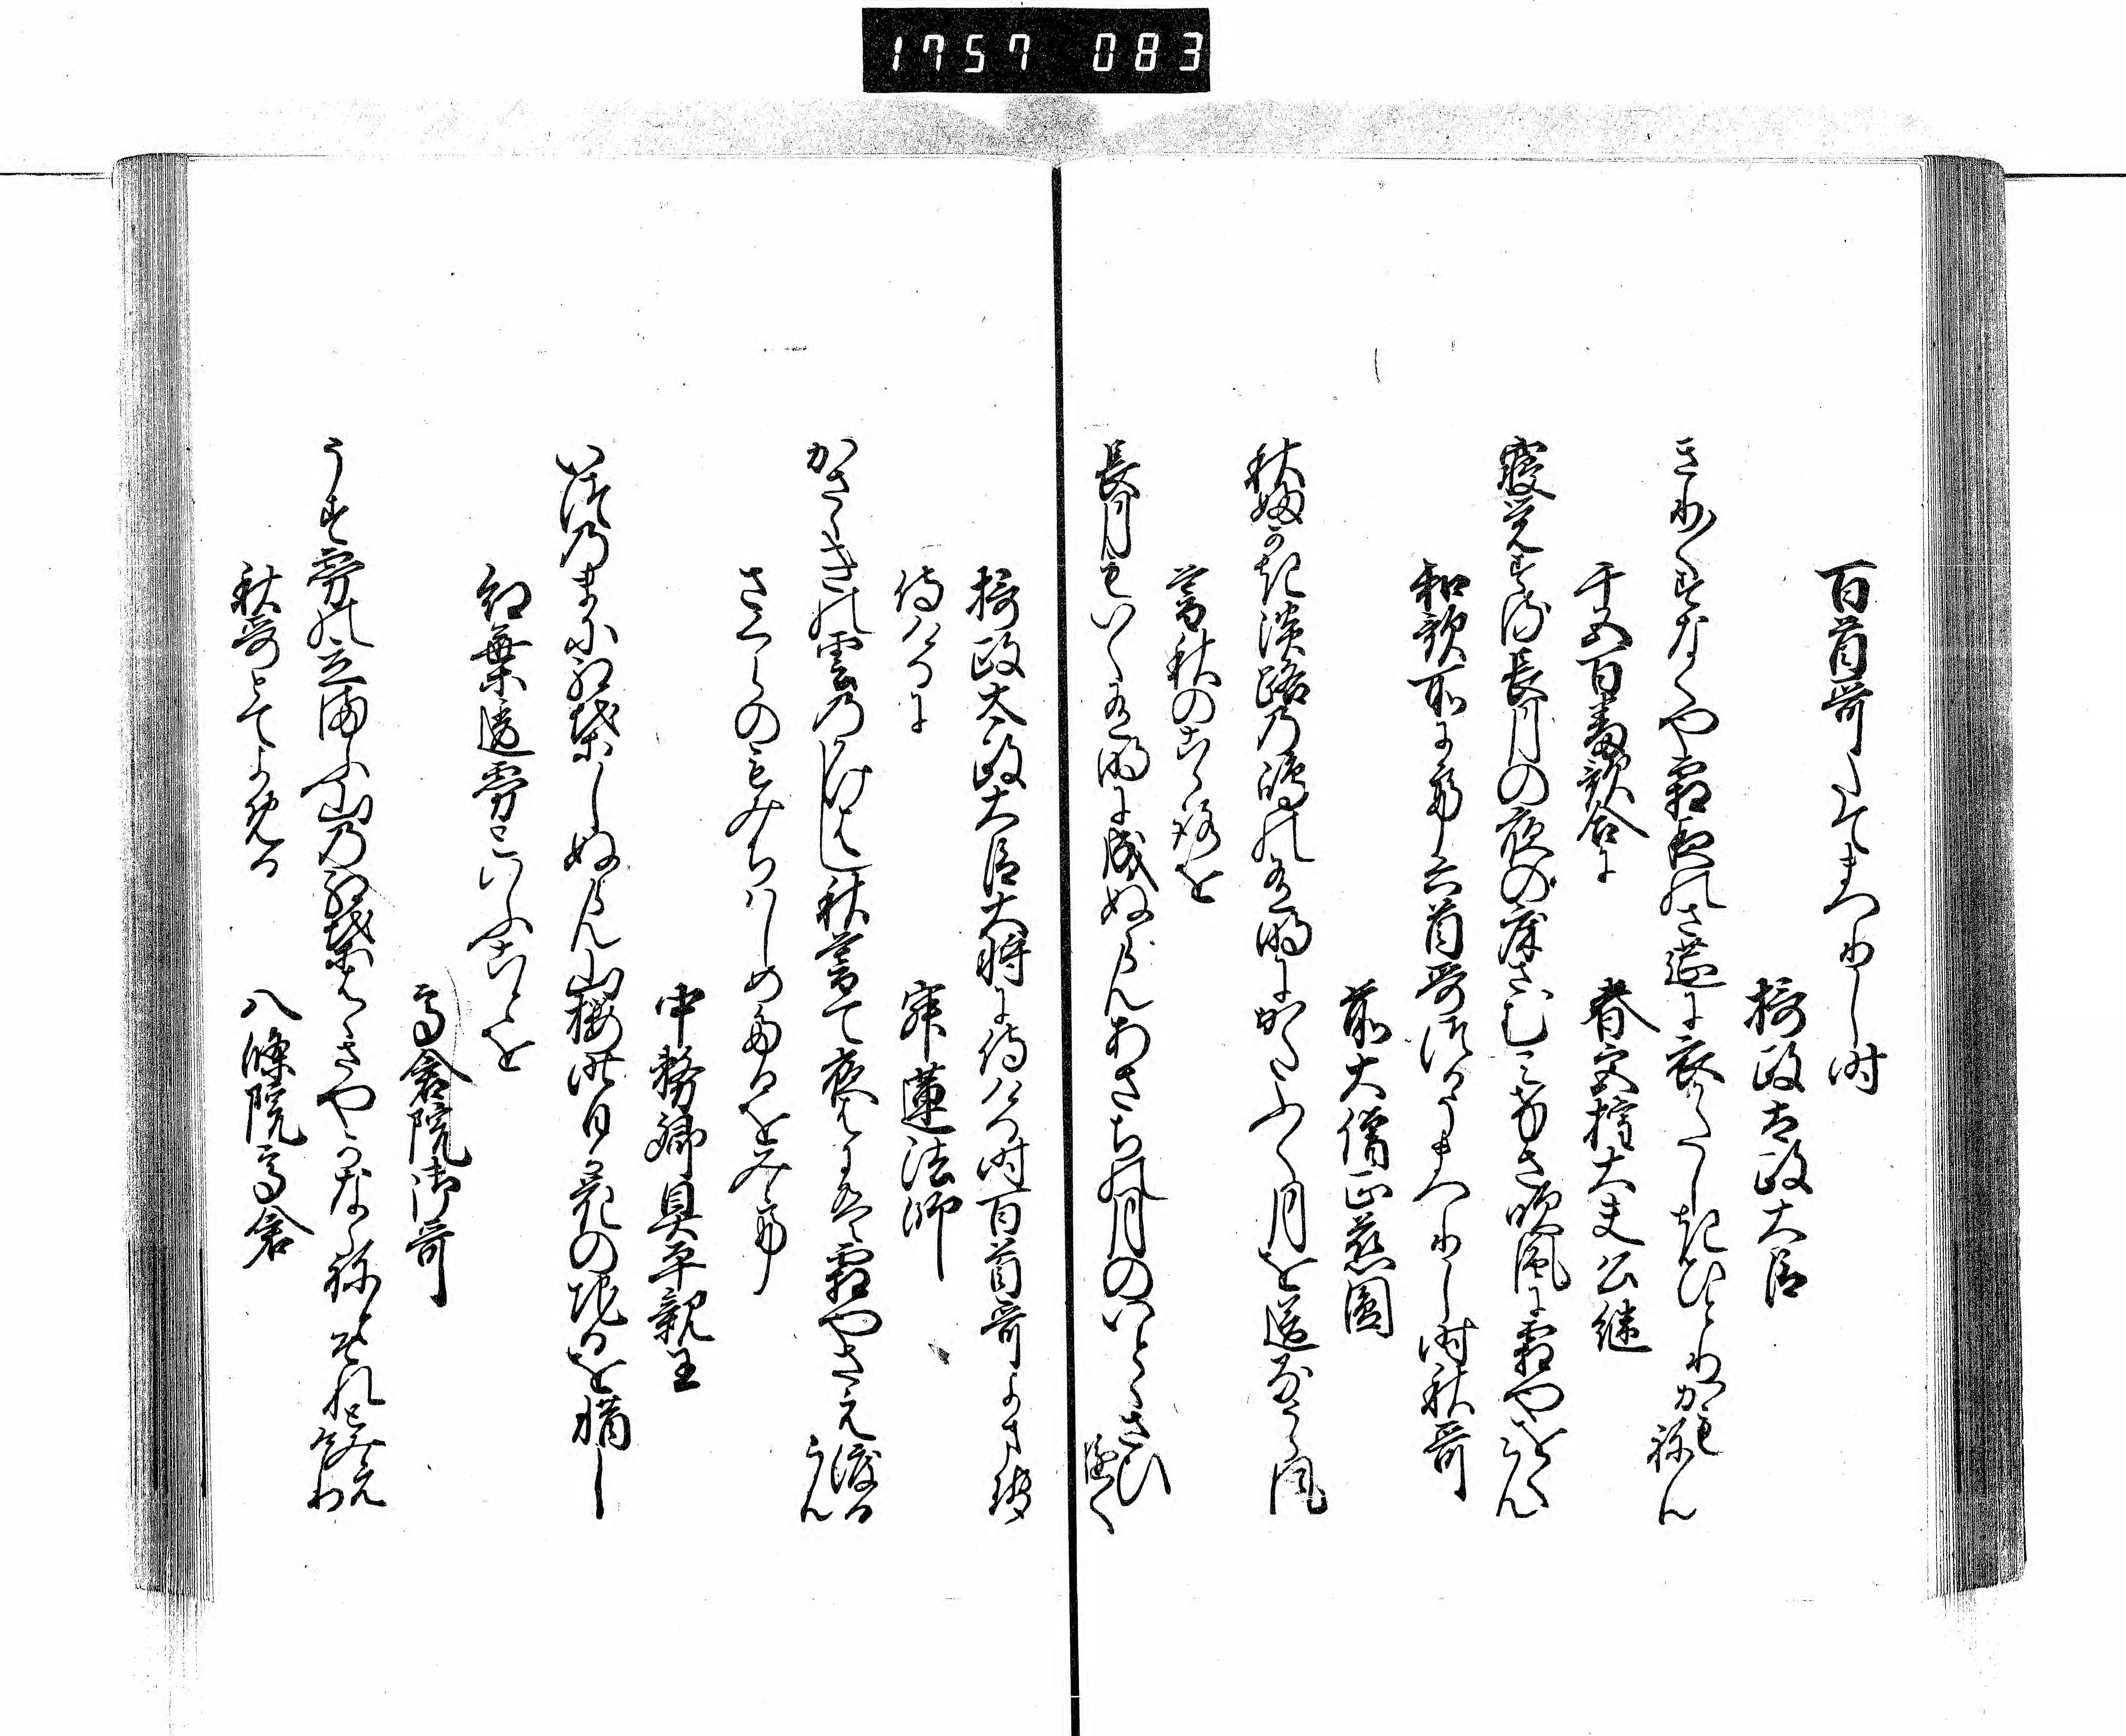 1757 083
百首哥たてまつりし時
摂政太政大臣
きり〳〵すなくや霜夜のさ莚に衣かたしきひとりかもねん
千五百番歌合に
春宮権大夫公継
寝覚する長月の夜の床さむみけさ吹風に霜やをくらん
和歌所にて六首哥つかうまつりし時秋哥
前大僧正慈圓
秋ふかき淡路の嶋の有明にかたふく月を送る浦風
暮秋のこゝろを
長月もいく有明に成ぬらんあさち月のいとゝさひ行く
摂政太政大臣大将に侍ける時百首哥よませ
侍けるに
寂蓮法師
かさゝきの雲のかけはし秋暮て夜半には霜やさえ渡るらん
さくらのもみちはしめたるをみて
中務卿具平親王
いつのまに紅葉しぬらん山桜昨日か花の散を惜し
紅葉透霧といふことを
高倉院御哥
うす霧の立まふ山の紅葉はゝさやかならねとそれと見えけり
秋哥とてよめる
八條院高倉